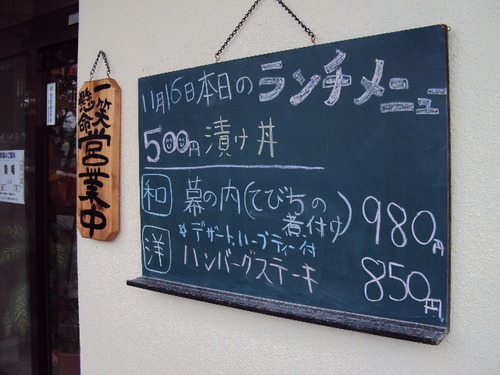 一笑懸命
営業中
11月16日本日のランチメニュー
500円 漬け丼
和 幕の内(てびちの煮付け) 980円
※デザート、ハーブティー付
洋 ハンバーグステーキ 850円